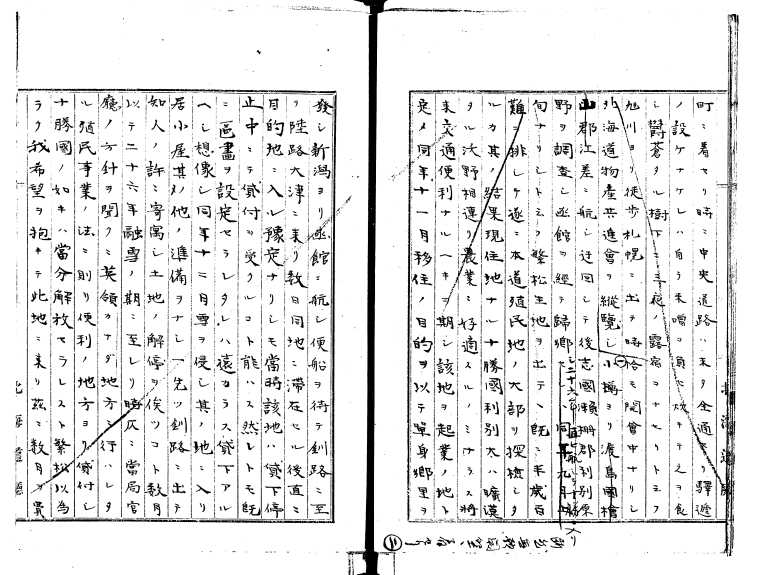 町ニ着セリ時ニ中央道路ハ未タ全通セス驛逓
ノ設ケナケレハ自ラ米噌ヲ負ヒ炊キテ之ヲ食
シ欝蒼タル樹下ニ三夜ノ露宿ヲナセリトミフ
旭川ヨリ徒歩札幌ニ出テ時恰モ開會中ナリシ
北海道物産共進會ヲ縦覧シ小樽ヨリ渡島國檜
山郡江差ニ航シ迂回シテ後志國瀬棚郡利別原
野ヲ調査シ函館ヲ經テ歸郷セシハ同年九月下
旬ナリシトミフ繁松生地ヲ出テヽ既ニ半歳百
難ヲ排シケ遂ニ本道殖民地ノ大部ヲ探檢シタ
ルカ其ノ結果現住地ナル十勝國利別太ハ曠漠
タル沃野相連リ農業ニ好適スルノミナラス將
来交通便利ナルヘキヲ期シ該地ヲ起業ノ地ト
定メ同年十一月移住ノ目的ヲ以テ單身郷里ヲ
發シ新潟ヨリ函館ニ航シ便船ヲ待テ釧路ニ至
リ陸路大津ニ来リ数日同地ニ滞在セル後直ニ
目的地ニ入ル豫定ナリシモ當時該地ハ貸下停
止中ニテ貸付ヲ受クルコト能ハス然レトモ既
ニ區畫ヲ設定セラレタレハ遠カラス貸下アル
ヘシト想像シ同年十二月雪ヲ侵シ其ノ地ニ入リ
居小屋其ノ他ノ準備ヲナシ一先ツ釧路ニ出テ
知人ノ許ニ寄寓シ土地ノ解停ヲ俟ツコト数月
以テ二十六年融雪ノ期ニ至レリ時仄ニ當局官
廳ノ方針ヲ聞クニ英領カナダ地方ニ行ハレタ
ル殖民事業ノ法ニ則リ便利ノ地方ヨリ貸付シ
十勝國ノ如キハ當分解放セラレスト繁松以為
ラク我希望ヲ抱キテ此地ニ来リ茲ニ数月ヲ費